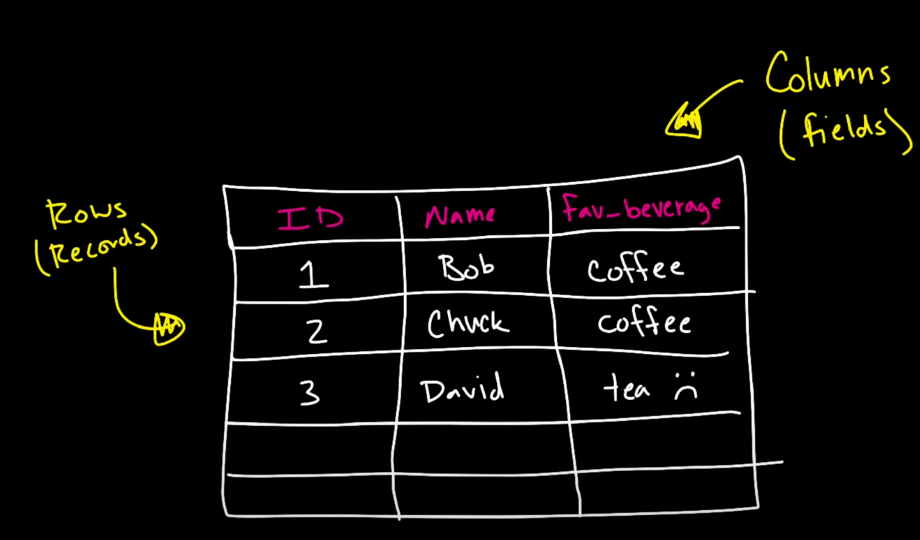 Columns
(fields)
Rows
(Records)
ID Name Fav_beverage
1 Bob coffee
2 Chuck coffee
3 David tea :(